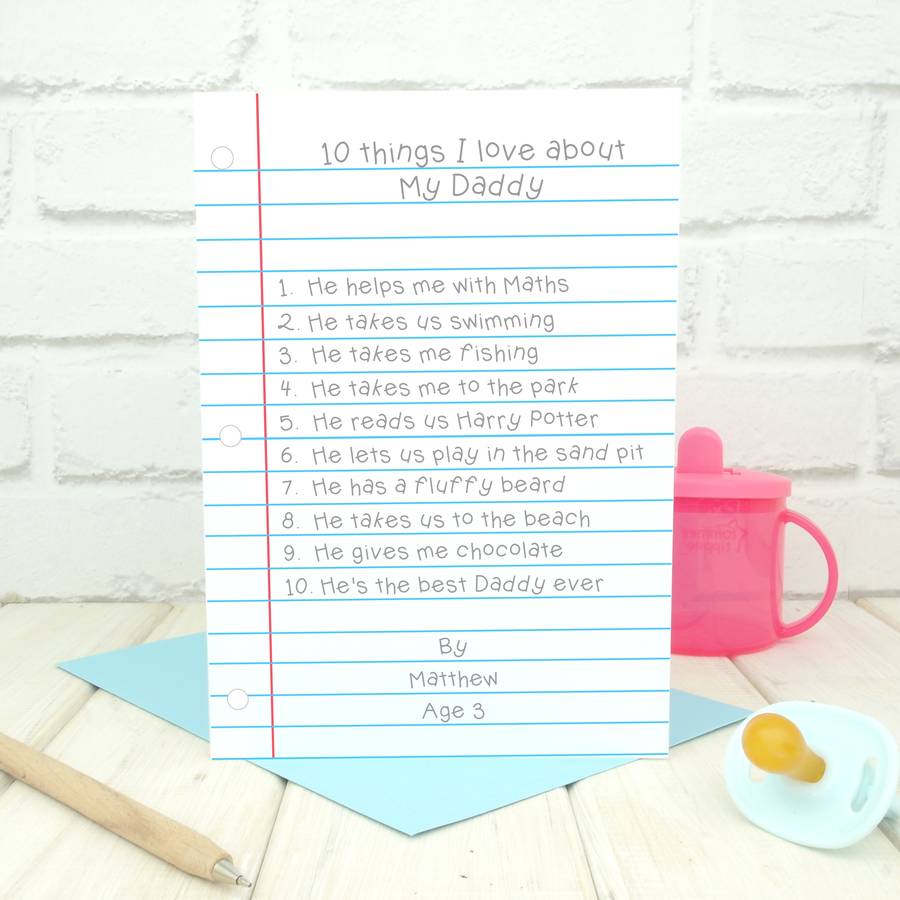 10 things I love about
My Daddy
1. He helps me with Maths
2. He takes us swimming
3. He takes me fishing
4. He takes me to the park
5. He reads us Harry Potter
6. He lets us play in the sand pit
7. He has a fluffy beard
8. He takes us to the beach
9. He gives me chocolate
10. He's the best Daddy ever
By
Matthew
Age 3